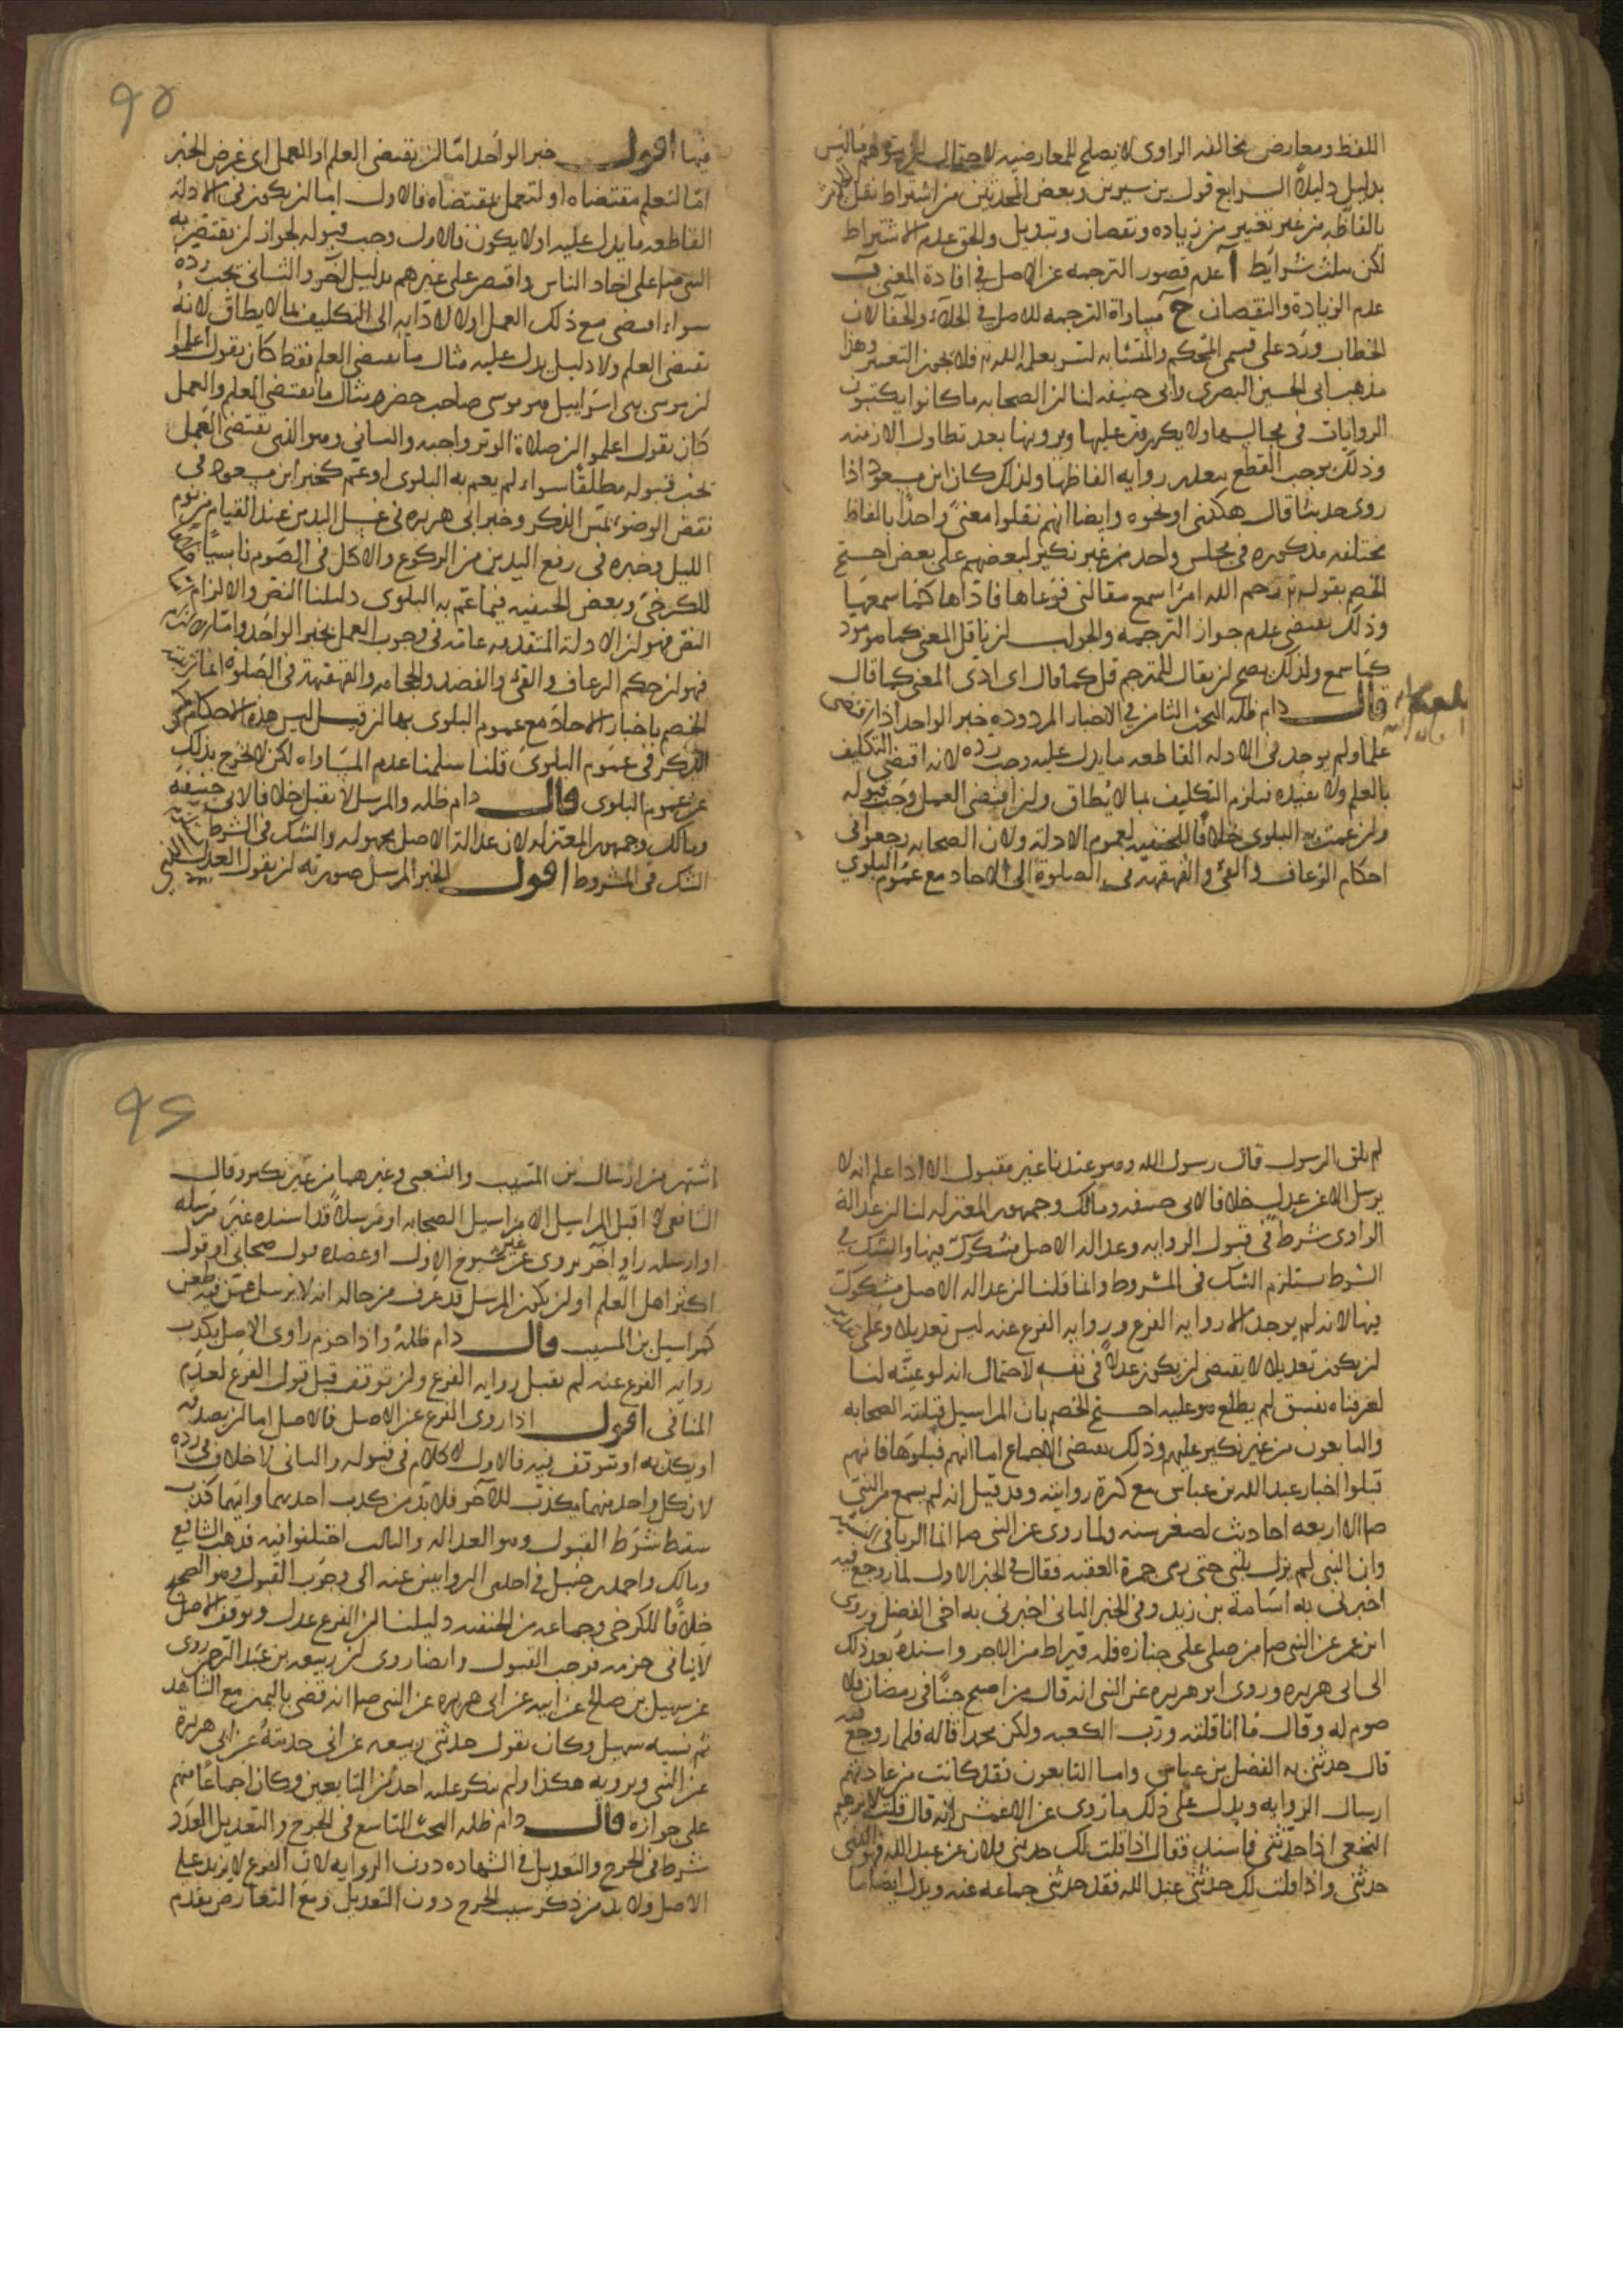 اللفظ ومعارض مخالفه الراوى لا يصلح للمعارضيه لاحتمال ان يتوهم ما ليس
بدليل دليلاً الرابع قول بن سيرين وبعض المحدثين من اشتراط نقل الخبر
بالفاظه من غير تغيير من زياده ونقصان وتبديل والحق عدم الاشتراط
لكن بثلث شرايط آ عدم قصور الترجمه عن الاصل في افادة المعنى ب
عدم الزيادة والنقصان ج مساواة الترجمه للاصل في الجلاء والخفا لان
الخطاب ورد على قسمى المحكم والمتشابه لسر يعلمه الله فلا يجوز التغيير وهذا
مذهب ابى الحسين البصرى وابى حنيفه لنا ان الصحابه ما كانوا يكتبون
الروايات فى مجالسها ولا يكررون عليها ويروونها بعد تطاول الازمنه
وذلك يوجب القطع بعدم روايه الفاظها ولذلك كان ابن مسعود اذا
روى حديثا قال هكذى او نحوه وايضا انهم نقلوا معنى واحداً بالفاظ
مختلفه مذكوره فى مجلس واحد من غير نكير لبعضهم على بعض احتج
الخصم بقوله رحم الله امرًا سمع مقالتى فوعاها فاداها كما سمعها
وذلك يقتضى عدم جواز الترجمه والجواب ان ناقل المعنى كما هو مود
كما سمع ولذلك يصح ان يقال للمترجم قل كما قال اى ادى المعنى كما قال
قال دام ظله البحث الثامن في الاخبار المردوده خبر الواحد اذا اقتضى
علماً ولم يوجد فى الادله القاطعه ما يدل عليه وجب رده لانه اقتضى التكليف
بالعلم ولا يفيده فيلزم التكليف بما لا يُطاق وان اقتضى العمل وجب قبوله
وان عمت به البلوى خلافًا للحنفيه لعموم الادلة ولان الصحابه رجعوا فى
احكام الرعاف والقئ والقهقهة فى الصلوة الى الاحاد مع عموم البلوى
فيها اقول خبر الواحد اما ان يقتضى العلم او العمل اى غرض الخبر
امّا لتعلم مقتضاه او لتعمل بمقتضاه فالاول اما ان يكون فى الادلة
القاطعه ما يدل عليه او لا يكون فالاول وجب قبوله لجواز ان يقتصر به
النبى على احاد الناس واقتصر على غيرهم بدليل آخر والثانى يجب رده
سواء اقتضى مع ذلك العمل او لا لادايه الى التكليف بما لا يطاق لانهُ
يقتضى العلم ولا دليل يدل عليه مثال ما يقتضى العلم فقط كان يقول اعلموا
ان موسى بنى اسرايل هو موسى صاحب خضر ومثال ما يقتضى العلم والعمل
كان يقول اعلموا ان صلاة الوتر واجبه والثانى وهو الذى يقتضى العمل
يجب قبوله مطلقًا سواء لم يعم به البلوى او عم كخبر ابن مسعود فى
نقض الوضوء بمس الذكر وخبر ابى هريره فى غسل اليدين عند القيام من نوم
الليل وخبره فى رفع اليدين من الركوع والاكل فى الصوم ناسيًا
للكرخى وبعض الحنفيه فيما عم به البلوى دليلنا النص والالزام
النص فهو ان الادله المتقدمه عامه فى وجوب العمل بخبر الواحد واما الالزام
فهو ان حكم الرعاف والقئ والفصد والحجامه والقهقهة فى الصلوه انما
الخصم باخبار الاحاد مع عموم البلوى بها ان قيل ليس هذه الاحكام
الذكر فى عموم البلوى قلنا سلمنا عدم المساواه لكن لا يخرج بذلك
عن عموم البلوى قال دام ظله والمرسل لا يقبل خلافا لابى حنيفه
ومالك وجمهور المعتزله لان عدالة الاصل مجهوله والشك فى الشرط
الشك فى المشروط اقول الخبر المرسل صورته ان يقول العدل الذى
لم يلق الرسول قال رسول الله وهو عندنا غير مقبول الا اذا علم انه لا
يرسل الا عن عدل خلافا لابى حنيفه ومالك وجمهور المعتزله لنا ان عدالة
الراوى شرط فى قبول الروايه وعدالة الاصل مشكوك فيها والشك في
الشرط يستلزم الشك فى المشروط وانما قلنا ان عداله الاصل مشكوك
فيها لانه لم يوجد الا روايه الفرع وروايه الفرع عنه ليس تعديلا وعلى
ان يكون تعديلا لا يقتضى ان يكون عدلا فى نفسه لاحتمال انه لو عينه لنا
لعرفناه بفسق لم يطلع هو عليه احتج الخصم بان المراسيل قبلته الصحابه
والتابعون من غير نكير عليهم وذلك يقتضى الاجماع اما انهم قبلوها فانهم
قبلوا اخبار عبد الله بن عباس مع كثرة روايته وقد قيل انه لم يسمع من النبى
الا اربعه احاديث لصغر سنه ولما روى عن النبى انما الربا فى
وان النبى لم يزل يلبى حتى رمى جمرة العقبه فقال في الخبر الاول لما روجع فيه
اخبرنى به اسامة بن زيد وفى الخبر الثانى اخبرنى به اخى الفضل وروى
ابن عمر عن النبى من صلى على جنازه فله قيراط من الاجر واسنده بعد ذلك
الى ابى هريره وروى ابو هريره عن النبى انه قال من اصبح جنبًا فى رمضان فلا
صوم له وقال ما انا قلته ورب الكعبه ولكن محمدا قاله فلما روجع فيه
قال حدثنى به الفضل بن عباس واما التابعون فقد كانت من عادتهم
ارسال الروايه ويدل على ذلك ما روى عن الاعمش انه قال قلت لابرهيم
النخعى اذا حدثتنى فاسند فقال اذا قلت لك حدثنى فلان عن عبد الله فهو الذى
حدثنى واذا قلت لك حدثنى عبد الله فقد حدثنى جماعه عنه ويدل ايضا ما
اشتهر من ارسال بن المسيب والشعبى وغيرهما من غير نكير وقال
الشافعى لا اقبل المراسيل الا مراسيل الصحابه او مرسلا قد اسنده غير مرسله
او ارسله راو اخر يروى عن غير شيوخ الاول او عضده قول صحابى او قول
اكثر اهل العلم او ان يكون المرسل قد عرف من حاله انه لا يرسل عمن فيه طعن
كمراسيل بن المسيب قال دام ظله واذا جزم راوى الاصل بكذب
روايه الفرع عنه لم يقبل روايه الفرع وان توقف قبل قول الفرع لعدم
المنافى اقول اذا روى الفرع عن الاصل فالاصل اما ان يصدقه
او يكذبه او يتوقف فيه فالاول لا كلام فى قبوله والثانى لا خلاف فى رده
لان كل واحد منهما يكذب للآخر فلا بد من كذب احدهما وايهما كذب
سقط شرط القبول وهو العداله والثالث اختلفوا فيه فذهب الشافعى
ومالك واحمد بن حنبل فى احدى الروايتين عنه الى وجوب القبول وهو الصحيح
خلافًا للكرخى وجماعه من الحنفيه دليلنا ان الفرع عدل وتوقف الاصل
لا ينافى جزمه فوجب القبول وايضا روى ان ربيعه بن عبد الرحمن روى
عن سهيل بن صالح عن ابيه عن ابى هريره عن النبى انه قضى باليمين مع الشاهد
ثم نسيه سهيل وكان يقول حدثنى ربيعه عنى انى حدثته عن ابى هريرة
عن النبى ويرويه هكذا ولم ينكر عليه احد من التابعين وكان اجماعا منهم
على جوازه قال دام ظله البحث التاسع فى الجرح والتعديل العدد
شرط فى الجرح والتعديل في الشهاده دون الروايه لان الفرع لا يزيد على
الاصل ولا بد من ذكر سبب الجرح دون التعديل ومع التعارض يقدم